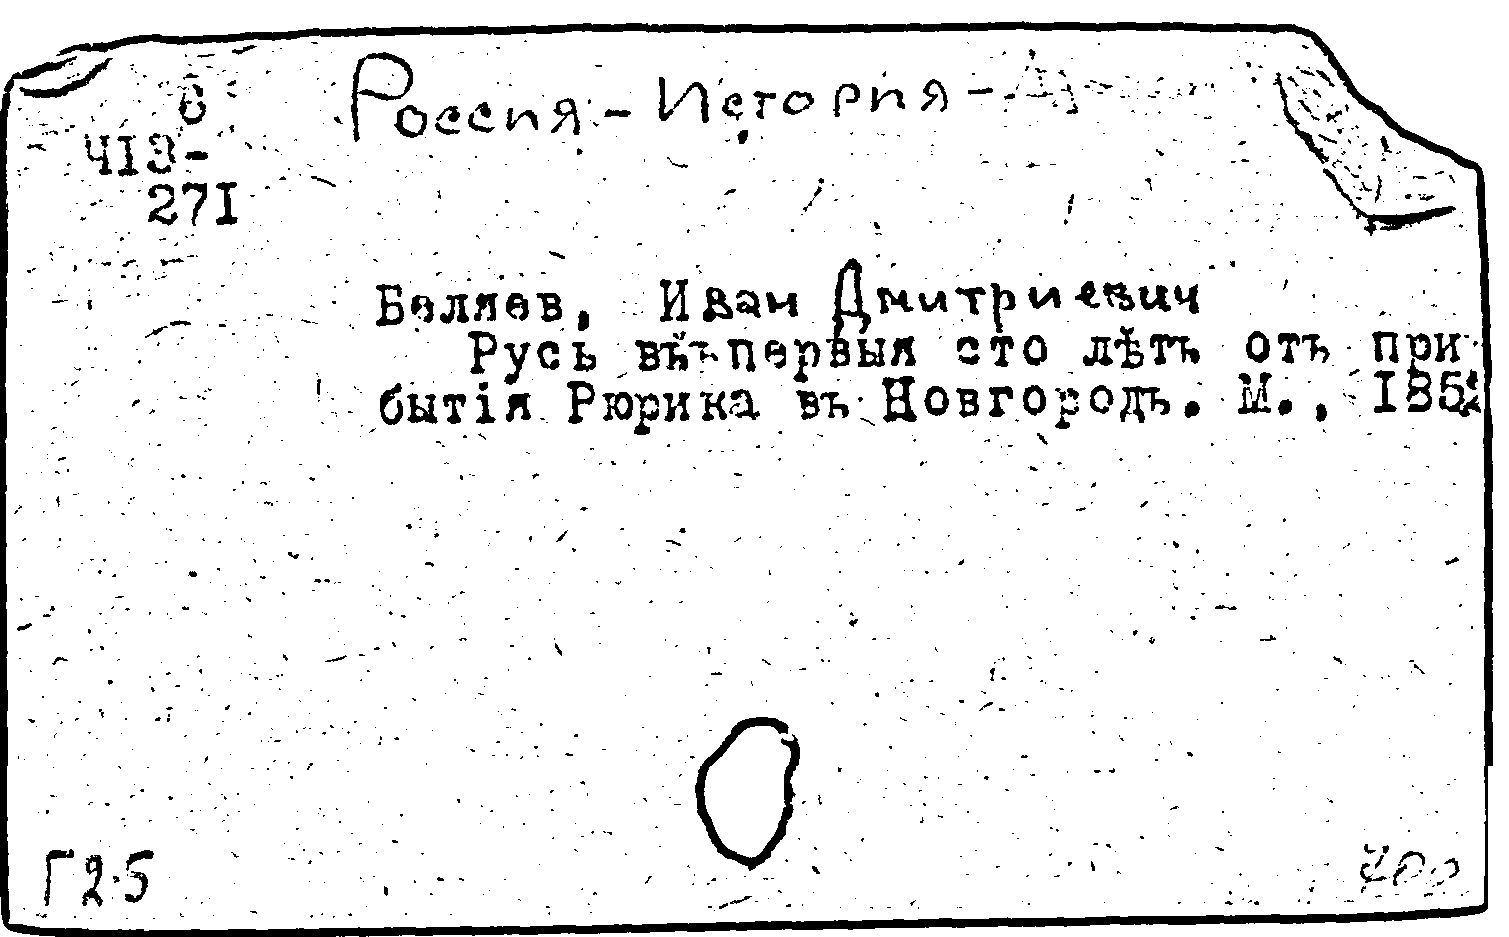 6
Россия - История -
ЧIЗ-
27I
Беляев, Иван Дмитриевич
Русь въ первыя сто лѣтъ отъ при
бытія Рюрика въ Новгородъ. М., I852
Г2.5